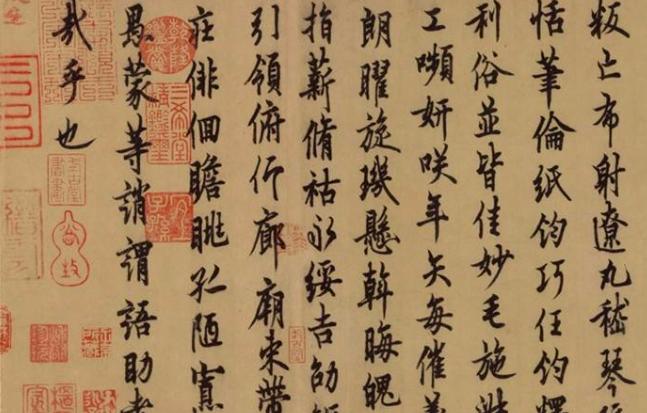 叛亡布射遼丸嵇琴
恬筆倫紙鈞巧任釣釋
利俗並皆佳妙毛施淑
工嚬妍咲年矢每催羲
朗曜旋璣懸斡晦魄
指薪脩祜永綏吉劭
引領俯仰廊廟束帶
莊徘徊瞻眺孤陋寡
愚蒙等誚謂語助者
哉乎也